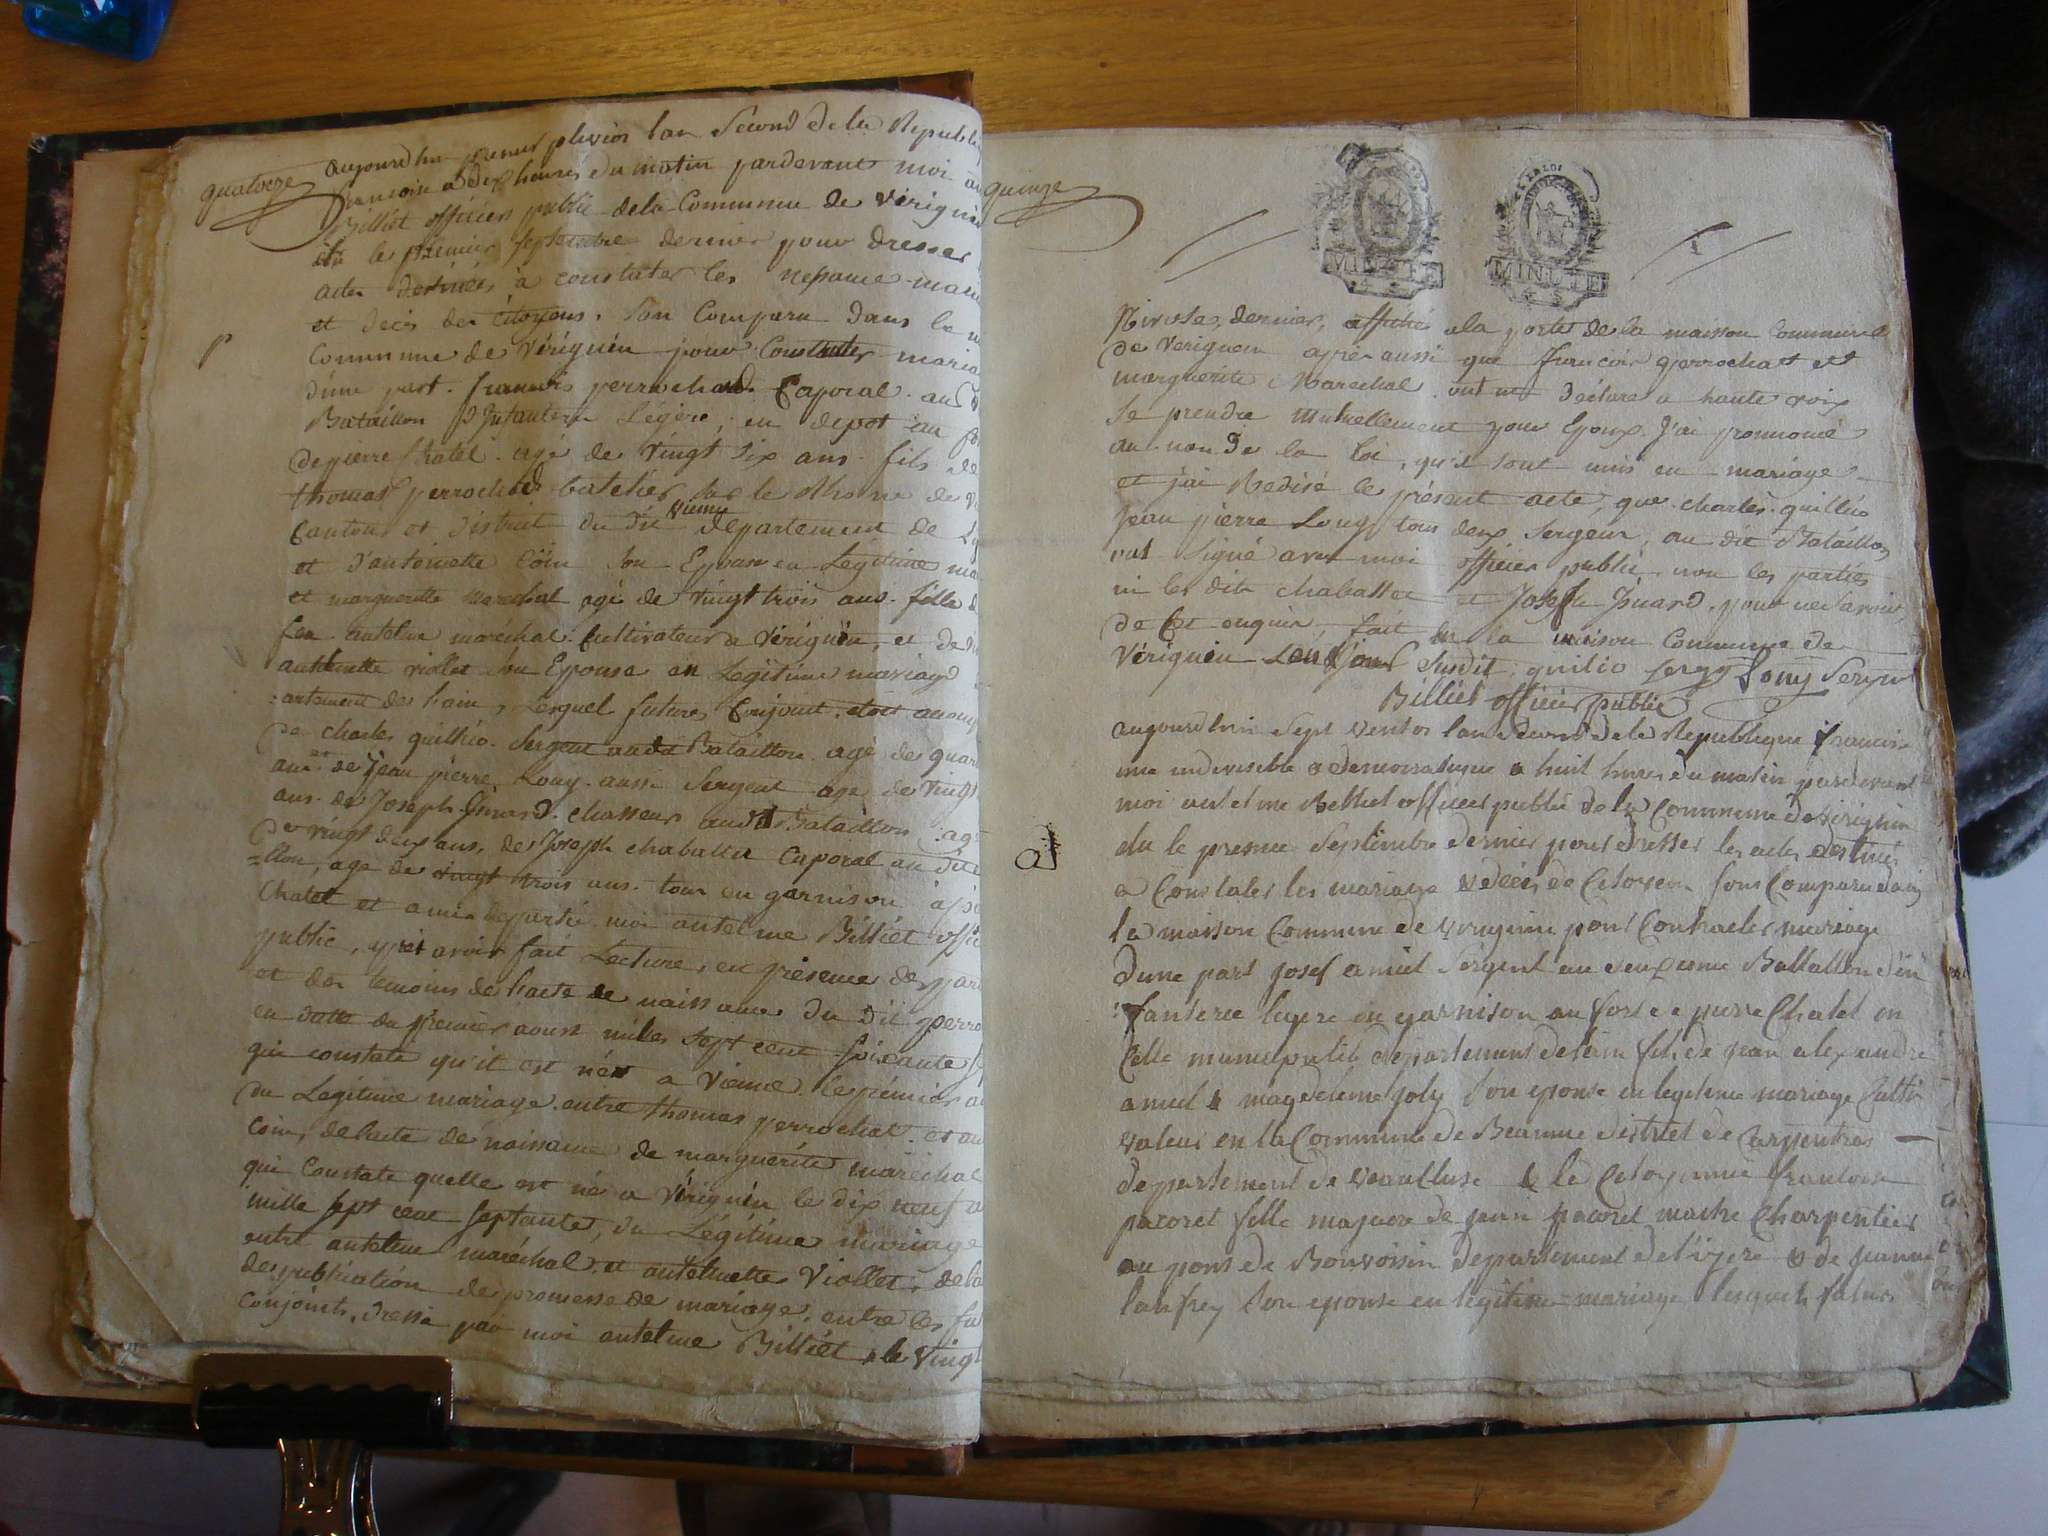 quatorze
aujourdhui premier pluvios lan Second de la Republiq
francoise a dix heures du matin pardevant moi an
Billiet officier public dela Commune de vérignin
élu le premier septembre dernier pour dresser
actes destinés à constater les nessance mari
et decis des citoyens. Son Comparu dans la
Commune de vérignin pour Constater maria
d'une part. francois perrochad. Caporal. au
Bataillon d'Infanterie Légère, en depot au fo
de pierre Chatel. agé de vingt six ans. fils de
thomas perrochad batelier sur le Rhone de
Canton et District du dit vienne département de
et d'antoinette Coin son Epouse en Légitime ma
et marguerite marechal agé de vingt trois ans. fille
feu antelme maréchal. Cultivateur a vérignin, et de
anthelmette viollet son Epouse en Legitime mariage
:artement de l'ain, Lesquel futures Conjoint, etoit accomp
de charles quillio. Sergent audit Bataillon agé de quar
ans. de Jean pierre Louy. aussi Sergent age de vingt
ans. de Joseph Isnard. chasseur audit Bataillon. agé
de vingt deux ans, de Joseph chabattu Caporal au dit
=llon, age de vingt trois ans. tous en garnison à
Chatel et amis departie. moi antelme Billiet offi
public, après avoir fait Lecture, en présence des par
et des temoins de l'acte de naissance du dit perro
en datte du premier aoust milles sept cent soixante
qui constate qu'il est née a vienne le premier
du Legitime mariage. entre thomas perrochat. et
Coin, de l'acte de naissance de marguérite maréchal
qui Constate quelle est né a vérignin le dix neuf
mille sept cent septante, du Légitime mariage
entre antelme maréchal. et antelmette Viollet. de la
de publication de promesse de mariage. entre les fu
Conjoints, dressé par moi antelme Billiet, le vingt
quinze
MINUTE
MINUTE
Nivose, dernier, affiché a la porte de la maison Commune
de verignin après aussi que francois perrochatt et
marguerite Marechal. ont déclaré a haute voix
Se prendre mutuellement pour Epoux. J'ai prononcé
au nom de la loi, qu'il sont unis en mariage
et j'ai Redisé le présent acte, que charles quillio
Jean pierre Louy tous deux Sergeur, au dit Bataillon
ont signé avec moi officier public, non les parties
ni les dits chabattu et Joseph Isnard, pour ne savoir
de ce enquis. fait en la maison Commune de
Vérignin Les Jour susdit. quilio sergt Louy Serjent
Billiet officier public
aujourdhui Sept ventos lan Second de la Republique francoise
une indivisible & democratique a huit heures du matin pardevant
moi antelme Belliet officier public de la Commune de virignin
elu le premier Septembre dernier pour dresser les actes destinés
a Constater les mariage & décés de Citoyen sont Comparu dans
la maison Commune de virignin pour Contracter mariage
Dune part Josef amiel Sergent au deuxieme Battallon d'in
:fanterie legere en garnison au fort de pierre Chatel en
Celle municipalité departement de lain fils de Jean alexandre
amiel & magdeleine Joly son epouse en legitime mariage Culti
vateur en la Commune de Beaume district de Carpentras
departement de vaucluse & la Citoyenne francoise
pacoret fille majeure de jean pacoret maitre Charpentier
au pont de Bonvoisin departement de l'izere & de jeanne
lanfrey son epouse en legitime mariage lesquels futurs